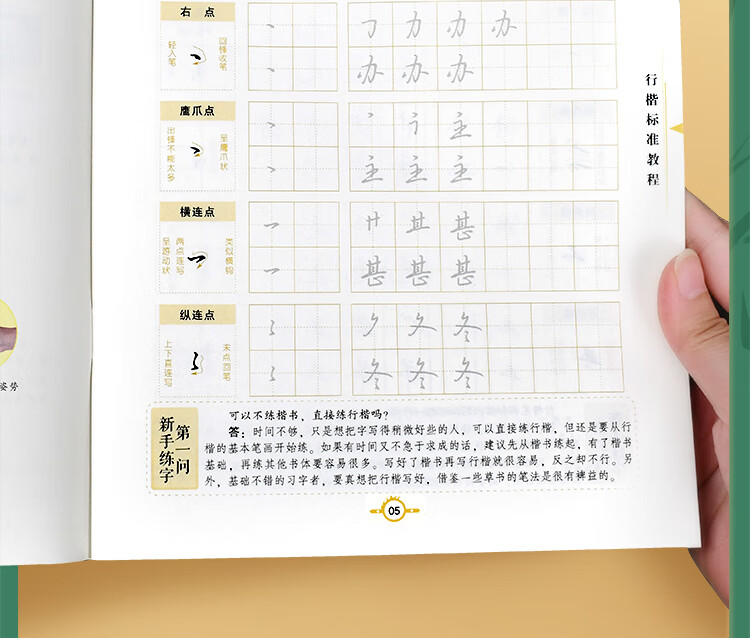 右点
轻入笔
回锋收笔
丶 𠃌 力 办 办
丶 办 办 办
鹰爪点
出锋不能太多
呈鹰爪状
丶 丶 主
丶 主 主 主
横连点
呈游动状
两点连写
类似横钩
卄 甚
甚 甚 甚
纵连点
上下直连写
末点回笔
夂 冬
冬 冬 冬
行楷标准教程
姿势
第一问
新手练字
可以不练楷书，直接练行楷吗？
答：时间不够，只是想把字写得稍微好些的人，可以直接练行楷，但还是要从行
楷的基本笔画开始练。如果有时间又不急于求成的话，建议先从楷书练起，有了楷书
基础，再练其他书体要容易很多。写好了楷书再写行楷就很容易，反之却不行。另
外，基础不错的习字者，要真想把行楷写好，借鉴一些草书的笔法是很有裨益的。
05